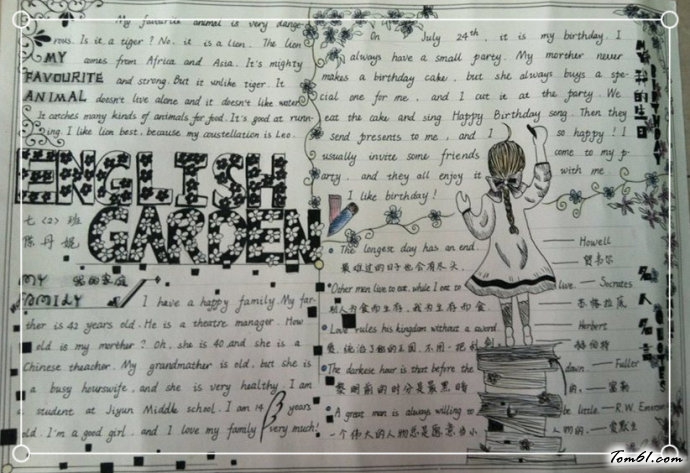 My favourite animal is very dange-
rous. Is it a tiger? No, it is a lion. The lion
MY
comes from Africa and Asia. It's mighty
FAVOURITE
and strong. But it unlike tiger. It
ANIMAL
doesn't live alone and it doesn't like water.
It catches many kinds of animals for food. It's good at runn-
ing. I like lion best, because my constellation is Leo.
On July 24th, it is my birthday. I
always have a small party. My morther never
makes a birthday cake, but she always buys a spe-
cial one for me, and I cut it at the party. We
eat the cake and sing Happy Birthday song. Then they
send presents to me, and I so happy! I
usually invite some friends come to my p-
arty, and they all enjoy it with me.
I like birthday!
我的生日
MY BIRTHDAY
ENGLISH
GARDEN
七(2)班
陈丹妮
MY 我的家庭
FAMILY
I have a happy family. My far-
ther is 42 years old. He is a theatre manager. How
old is my morther? Oh, she is 40, and she is a
Chinese theacher. My grandmother is old, but she is
a busy hourswife, and she is very healthy. I am
a student at Jiyun Middle school. I am 14 years
old. I'm a good girl, and I love my family very much!
The longest day has an end. —— Howell
最难过的日子也会有尽头。
Other men live to eat, while I eat to live. —— Socrates
别人为食而生存,我为生存而食 苏格拉底
Love rules his kingdom without a sword. —— Herbert
爱,统治了他的王国,不用一把利剑 赫伯特
The darkese hour is that before the down. —— Fuller
黎明前的时分是最黑暗的。——富勒
A great man is always willing to be little. —— R.W. Emerson
一个伟大的人物总是愿意当小人物的。——爱默生
名人名言
QUOTES
Tom61.com